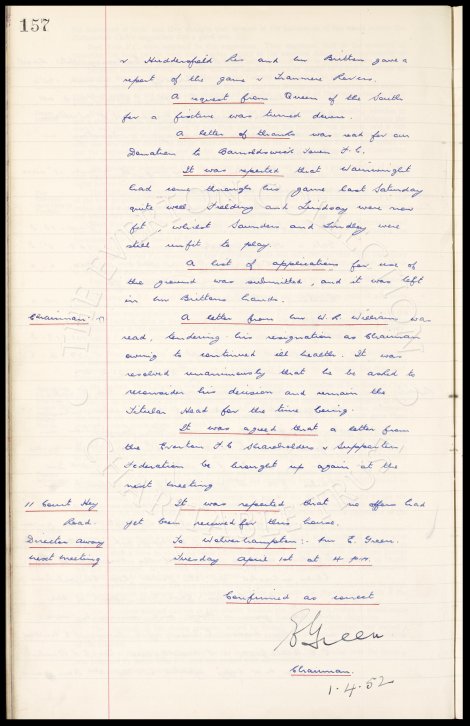 157
v Huddersfield Res and Mr Britton gave a
report of the game v Tranmere Rovers.
A request from Queen of the South
for a fixture was turned down.
A letter of thanks was read for our
Donation to Barnoldswick Town F.C.
It was reported that Wainwright
had come through his game last Saturday
quite well. Fielding and Lindsay were now
fit, whilst Saunders and Lindley were
still unfit to play.
A list of applications for use of
the ground was submitted, and it was left
in Mr Brittons hands.
Chairman:
A letter from Mr W.R. Williams was
read, tendering his resignation as Chairman
owing to continued ill health. It was
resolved unanimously that he be asked to
reconsider his decision and remain the
Titular Head for the time being.
It was agreed that a letter from
the Everton F.C Shareholders & Supporters
Federation be brought up again at the
next meeting
11 Court Hey
Road
It was reported that no offers had
yet been received for this house.
Director away
To Wolverhampton:- Mr E. Green.
next meeting
Tuesday April 1st at 4 p.m.
Confirmed as correct
E Green
Chairman.
1.4.52